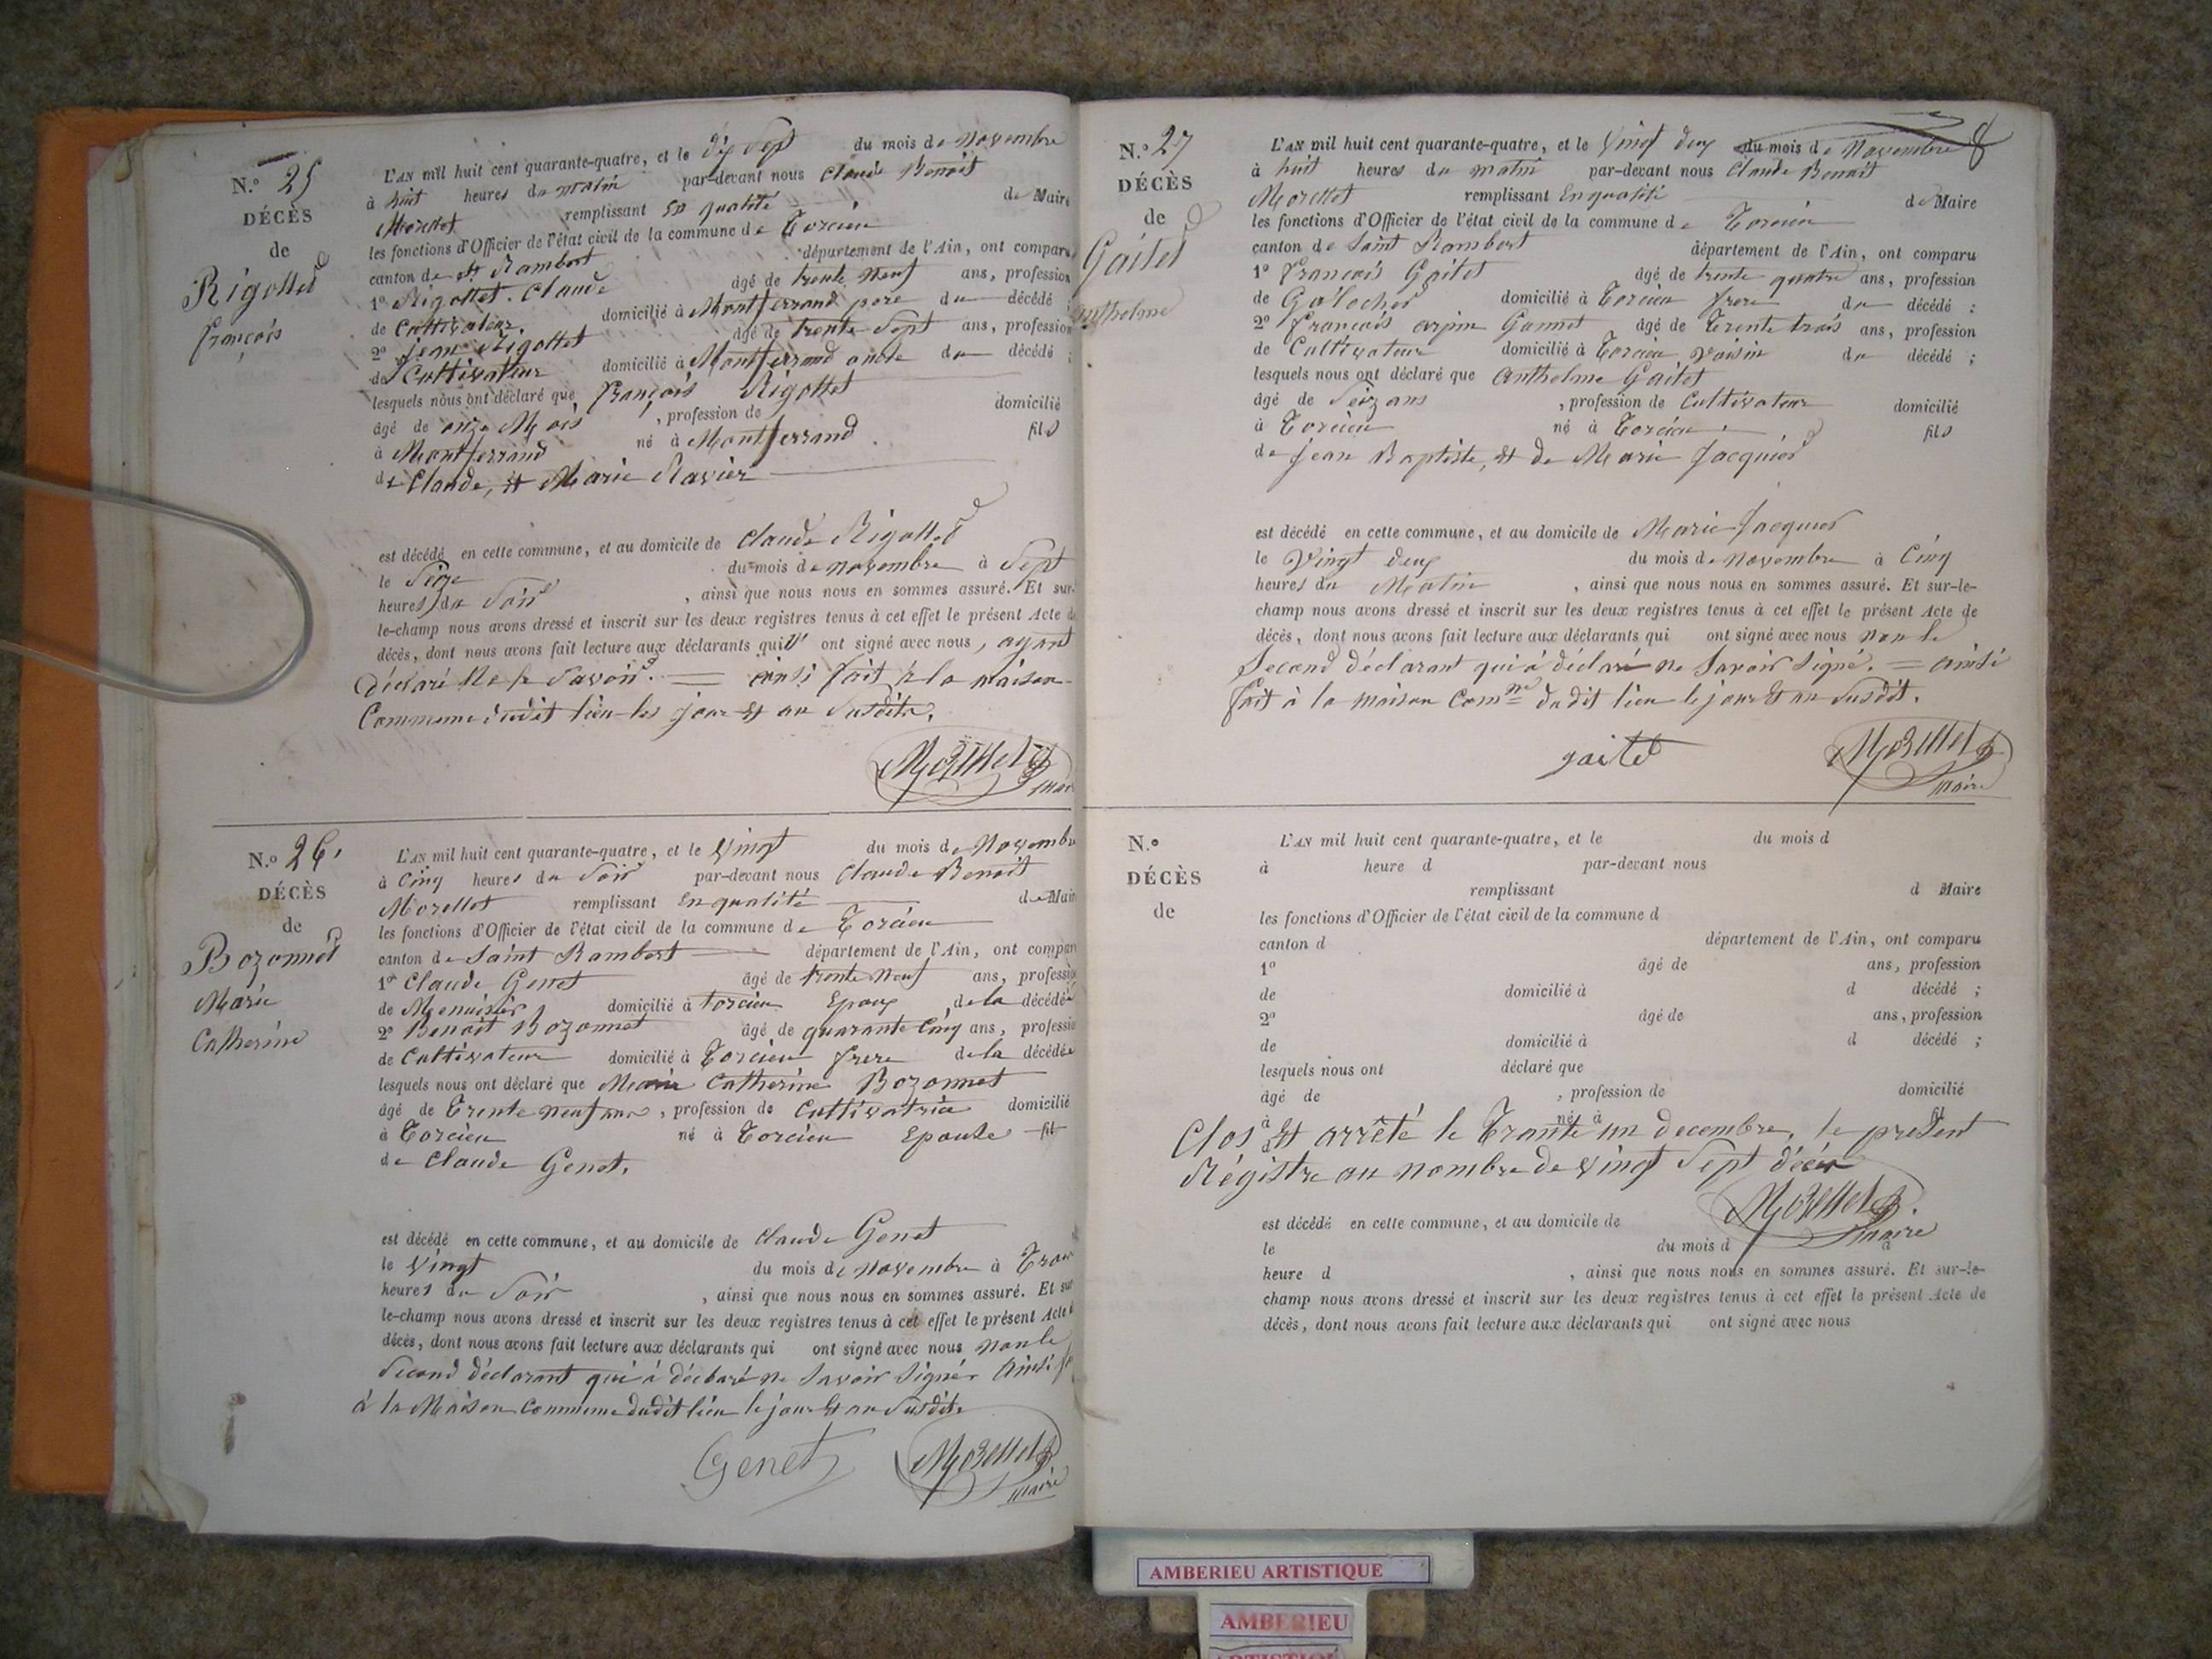 N.º 25
DÉCÈS
de
Rigollet
françois
L'AN mil huit cent quarante-quatre, et le dix Sept du mois de Novembre
à huit heures du matin par-devant nous Claude Benoit
Morellet remplissant en qualité de Maire
les fonctions d'Officier de l'état civil de la commune de Torcieu
canton de st Rambert département de l'Ain, ont comparu
1º Rigollet Claude âgé de trente neuf ans, profession
de Cultivateur domicilié à Montferrand pere du décédé ;
2º jean Rigollet âgé de trente Sept ans, profession
de Cultivateur domicilié à Montferrand oncle du décédé ;
lesquels nous ont déclaré que françois Rigollet
âgé de onze Mois , profession de domicilié
à Montferrand né à Montferrand fils
de Claude, et Marie Ravier
est décédé en cette commune, et au domicile de Claude Rigollet
le Seize du mois de novembre à Sept
heures du Soir , ainsi que nous nous en sommes assuré. Et sur-
le-champ nous avons dressé et inscrit sur les deux registres tenus à cet effet le présent Acte de
décès, dont nous avons fait lecture aux déclarants qui ont signé avec nous, ayant
déclaré ne le Savoir. = ainsi fait à la maison
Commune dudit lieu les jour et an Susdits.
Morellet
maire
N.º 26
DÉCÈS
de
Bozonnet
Marie
Catherine
L'AN mil huit cent quarante-quatre, et le Vingt du mois de Novembre
à Cinq heures du Soir par-devant nous Claude Benoit
Morellet remplissant en qualité de Maire
les fonctions d'Officier de l'état civil de la commune de Torcieu
canton de Saint Rambert département de l'Ain, ont comparu
1º Claude Genet âgé de trente neuf ans, profession
de Menuisier domicilié à torcieu Epoux de la décédée
2º Benoit Bozonnet âgé de quarante Cinq ans, profession
de Cultivateur domicilié à Torcieu frere de la décédée
lesquels nous ont déclaré que Marie Catherine Bozonnet
âgé de Trente neuf ans , profession de Cultivatrice domicilié
à Torcieu né à Torcieu Epouse fil
de Claude Genet.
est décédé en cette commune, et au domicile de Claude Genet
le Vingt du mois de novembre à
heures du Soir , ainsi que nous nous en sommes assuré. Et sur
le-champ nous avons dressé et inscrit sur les deux registres tenus à cet effet le présent Acte
décès, dont nous avons fait lecture aux déclarants qui ont signé avec nous non le
Second déclarant qui à déclaré ne Savoir Signer Ainsi
à la Maison Commune dudit lieu le jour et an Susdit.
Genet Morellet
maire
N.º 27
DÉCÈS
de
Gaitet
Anthelme
L'AN mil huit cent quarante-quatre, et le Vingt deux du mois de Novembre
à huit heures du matin par-devant nous Claude Benoit
Morellet remplissant En qualité de Maire
les fonctions d'Officier de l'état civil de la commune de Torcieu
canton de Saint Rambert département de l'Ain, ont comparu
1º françois Gaitet âgé de trente quatre ans, profession
de Galocher domicilié à Torcieu frere du décédé ;
2º françois Gannet âgé de Trente trois ans, profession
de Cultivateur domicilié à Torcieu Voisin du décédé ;
lesquels nous ont déclaré que Anthelme Gaitet
âgé de Seize ans , profession de Cultivateur domicilié
à Torcieu né à Torcieu fils
de jean Baptiste, et de Marie Jacquier
est décédé en cette commune, et au domicile de Marie Jacquier
le Vingt deux du mois de novembre à Cinq
heures du Matin , ainsi que nous nous en sommes assuré. Et sur-le-
champ nous avons dressé et inscrit sur les deux registres tenus à cet effet le présent Acte de
décès, dont nous avons fait lecture aux déclarants qui ont signé avec nous non le
Second déclarant qui à déclaré ne Savoir Signé. = ainsi
fait à la maison Comne dudit lieu le jour et an Susdit.
gaitet Morellet
maire
N.º
DÉCÈS
de
L'AN mil huit cent quarante-quatre, et le du mois d
à heure d par-devant nous
remplissant d Maire
les fonctions d'Officier de l'état civil de la commune d
canton d département de l'Ain, ont comparu
1º âgé de ans, profession
de domicilié à d décédé ;
2º âgé de ans, profession
de domicilié à d décédé ;
lesquels nous ont déclaré que
âgé de , profession de domicilié
à né à fil
Clos et arrêté le Trante un decembre, le present
Régistre au nombre de Vingt Sept décès
Morellet
maire
est décédé en cette commune, et au domicile de
le du mois d à
heure d , ainsi que nous nous en sommes assuré. Et sur-le-
champ nous avons dressé et inscrit sur les deux registres tenus à cet effet le présent Acte de
décès, dont nous avons fait lecture aux déclarants qui ont signé avec nous
AMBERIEU ARTISTIQUE
AMBERIEU
ARTISTIQUE